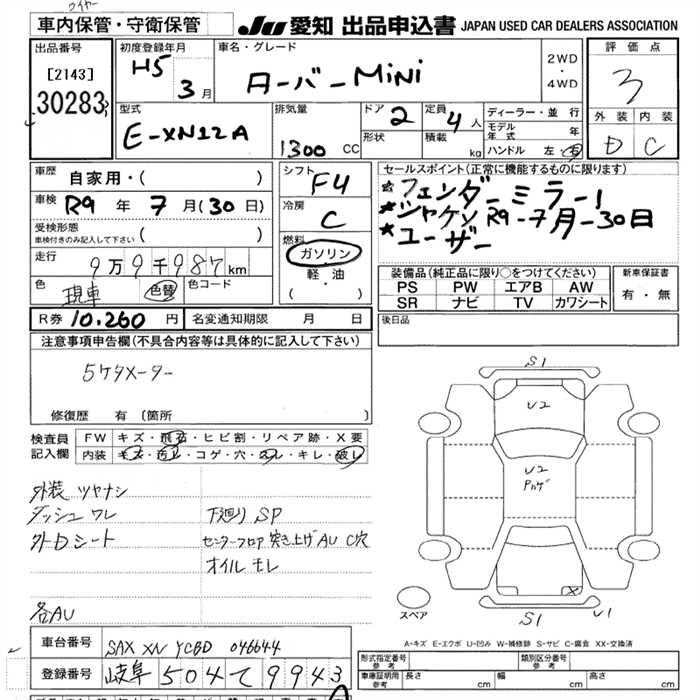 ワイヤー
車内保管・守衛保管
JU 愛知 出品申込書 JAPAN USED CAR DEALERS ASSOCIATION
出品番号
[2143]
30283
初度登録年月
H5 3月
車名・グレード
ローバーMiNi
2WD
・
4WD
評価点
3
外装 内装
D C
型式
E-XN12A
排気量
1300 CC
ドア 2
形状
定員 4人
積載 kg
ディーラー・並行
モデル年式 年
ハンドル 左・右
車歴 自家用・( )
車検 R9年 7月(30日)
受検形態
車検付きのみ記入して下さい ( )
走行 9万9千987km
色 現車 色替
色コード
シフト F4
冷房 C
燃料
ガソリン
軽油
( ・ )
セールスポイント(正常に機能するものに限ります)
☆フェンダーミラー!
★シャケンR9-7月-30日
★ユーザー
装備品(純正品に限り○をつけてください)
PS PW エアB AW
SR ナビ TV カワシート
新車保証書
有・無
R券 10.260円 名変通知期限 月 日
後日品
注意事項申告欄(不具合内容等は具体的に記入して下さい)
5ケタメーター
修復歴 有(箇所
検査員記入欄
FW キズ・飛石・ヒビ割・リペア跡・X要
内装 キズ・汚レ・コゲ・穴・スレ・キレ・破レ
外装 ツヤナシ
ダッシュ ワレ
外Dシート
各AU
下廻り SP
センターフロア 突き上げAU C穴
オイルモレ
S1
U2
U2
Pハゲ
X
S1
U1
スペア
A-キズ E-エクボ U-凹み W-補修跡 S-サビ C-腐食 XX-交換済
車台番号 SAX XN YCBD 046644
登録番号 岐阜 504 て 9943
形式指定番号
参考
類別区分番号
参考
車庫証明用
参考
長さ cm 幅 cm 高さ cm